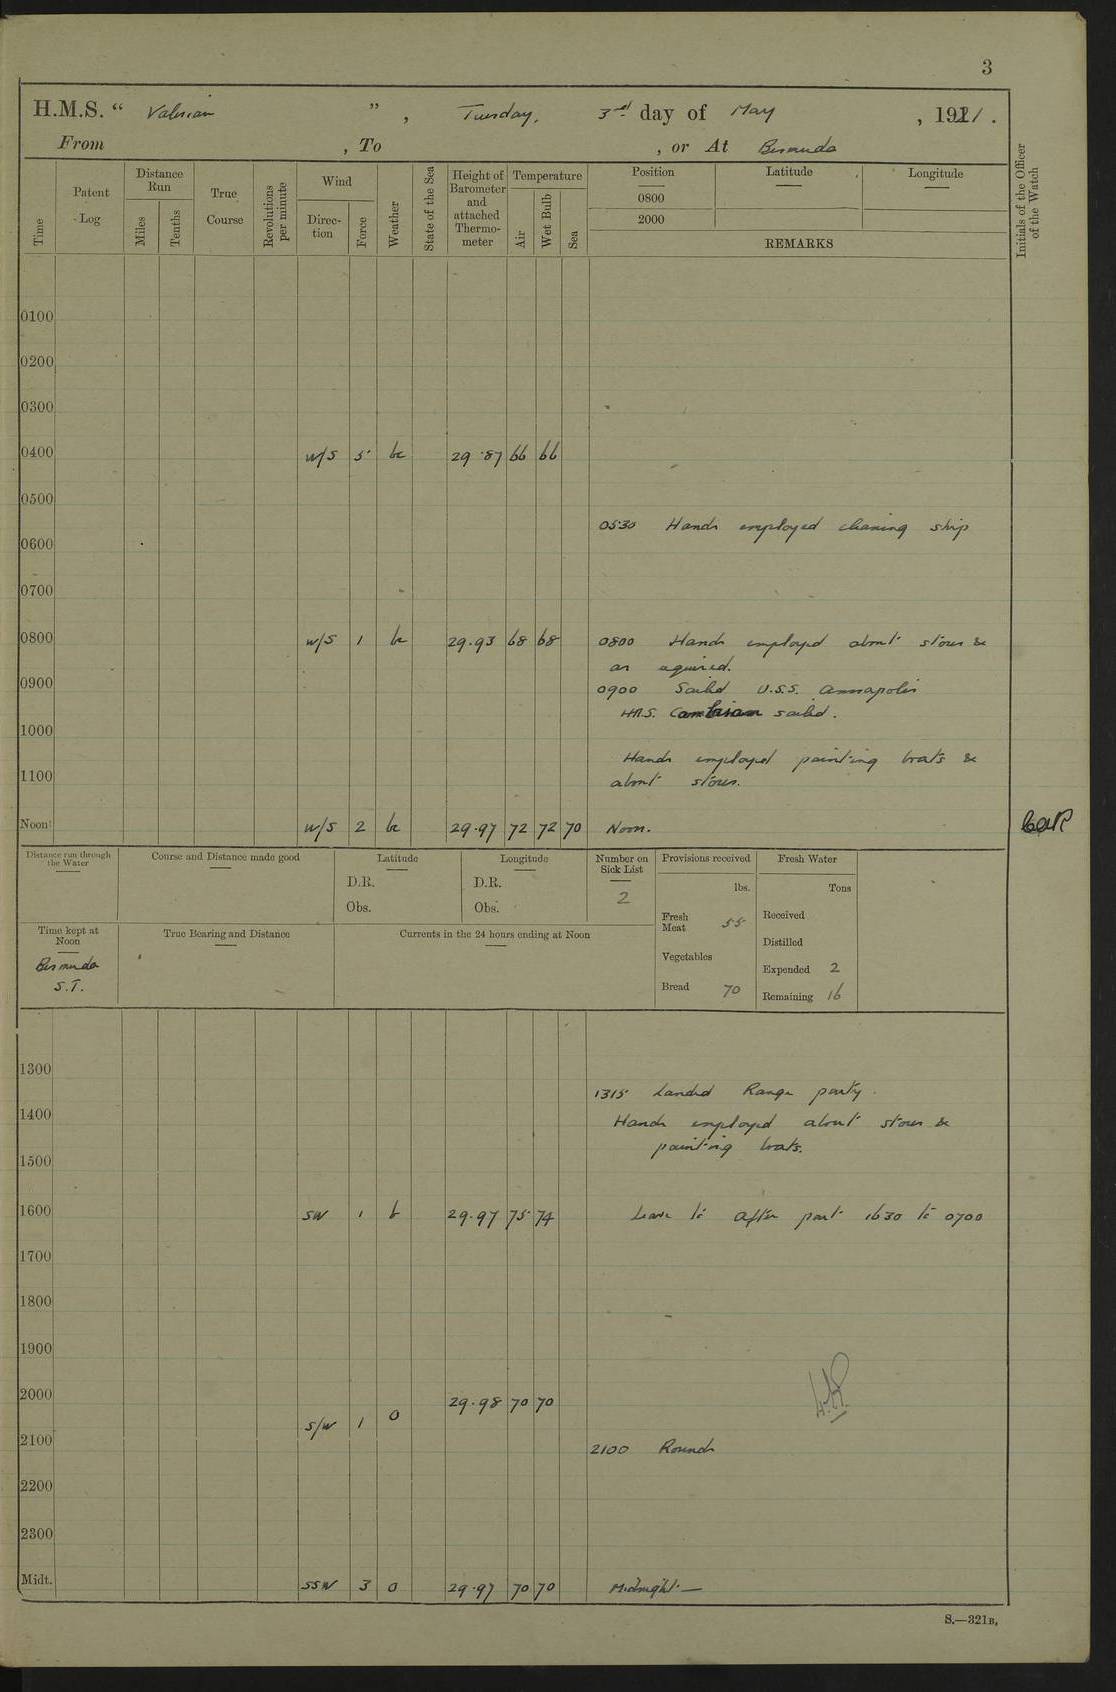 3
H.M.S. " Valerian ", Tuesday, 3rd day of May, 1921.
From , To , or At Bermuda
Time
Patent Log
Distance Run
Miles
Tenths
True Course
Revolutions per minute
Wind
Direction
Force
Weather
State of the Sea
Height of Barometer and attached Thermometer
Temperature
Air
Wet Bulb
Sea
Position
Latitude
Longitude
0800
2000
REMARKS
Initials of the Officer of the Watch
0100
0200
0300
0400 W/S 5 bc 29.87 66 66
0500
0530 Hands employed cleaning ship
0600
0700
0800 W/S 1 bc 29.93 68 68 0800 Hands employed about stores &
as required.
0900
0900 Sailed U.S.S. Annapolis
H.M.S. Cambrian sailed.
1000
Hands employed painting boats &
1100 about stores.
Noon W/S 2 bc 29.97 72 72 70 Noon.
Distance run through the Water
Course and Distance made good
Latitude
D.R.
Obs.
Longitude
D.R.
Obs.
Number on Sick List
2
Provisions received
lbs.
Fresh Meat 55
Vegetables
Bread 70
Fresh Water
Tons
Received
Distilled
Expended 2
Remaining 16
Time kept at Noon
Bermuda
S.T.
True Bearing and Distance
Currents in the 24 hours ending at Noon
1300
1315 Landed Range party.
1400 Hands employed about stores &
painting boats.
1500
1600 SW 1 b 29.97 75 74 Leave to after part 1630 to 0700
1700
1800
1900
2000 29.98 70 70
S/W 1 o
2100 2100 Rounds
2200
2300
Midt. SSW 3 o 29.97 70 70 Midnight —
S.—321B.